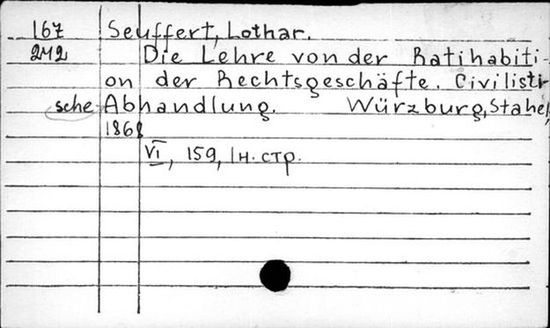 167 Seuffert, Lothar.
242 Die Lehre von der Ratihabiti-
on der Rechtsgeschäfte. Civilisti-
sche Abhandlung. Würzburg, Stahel,
1868
VI, 159, 1 н. стр.